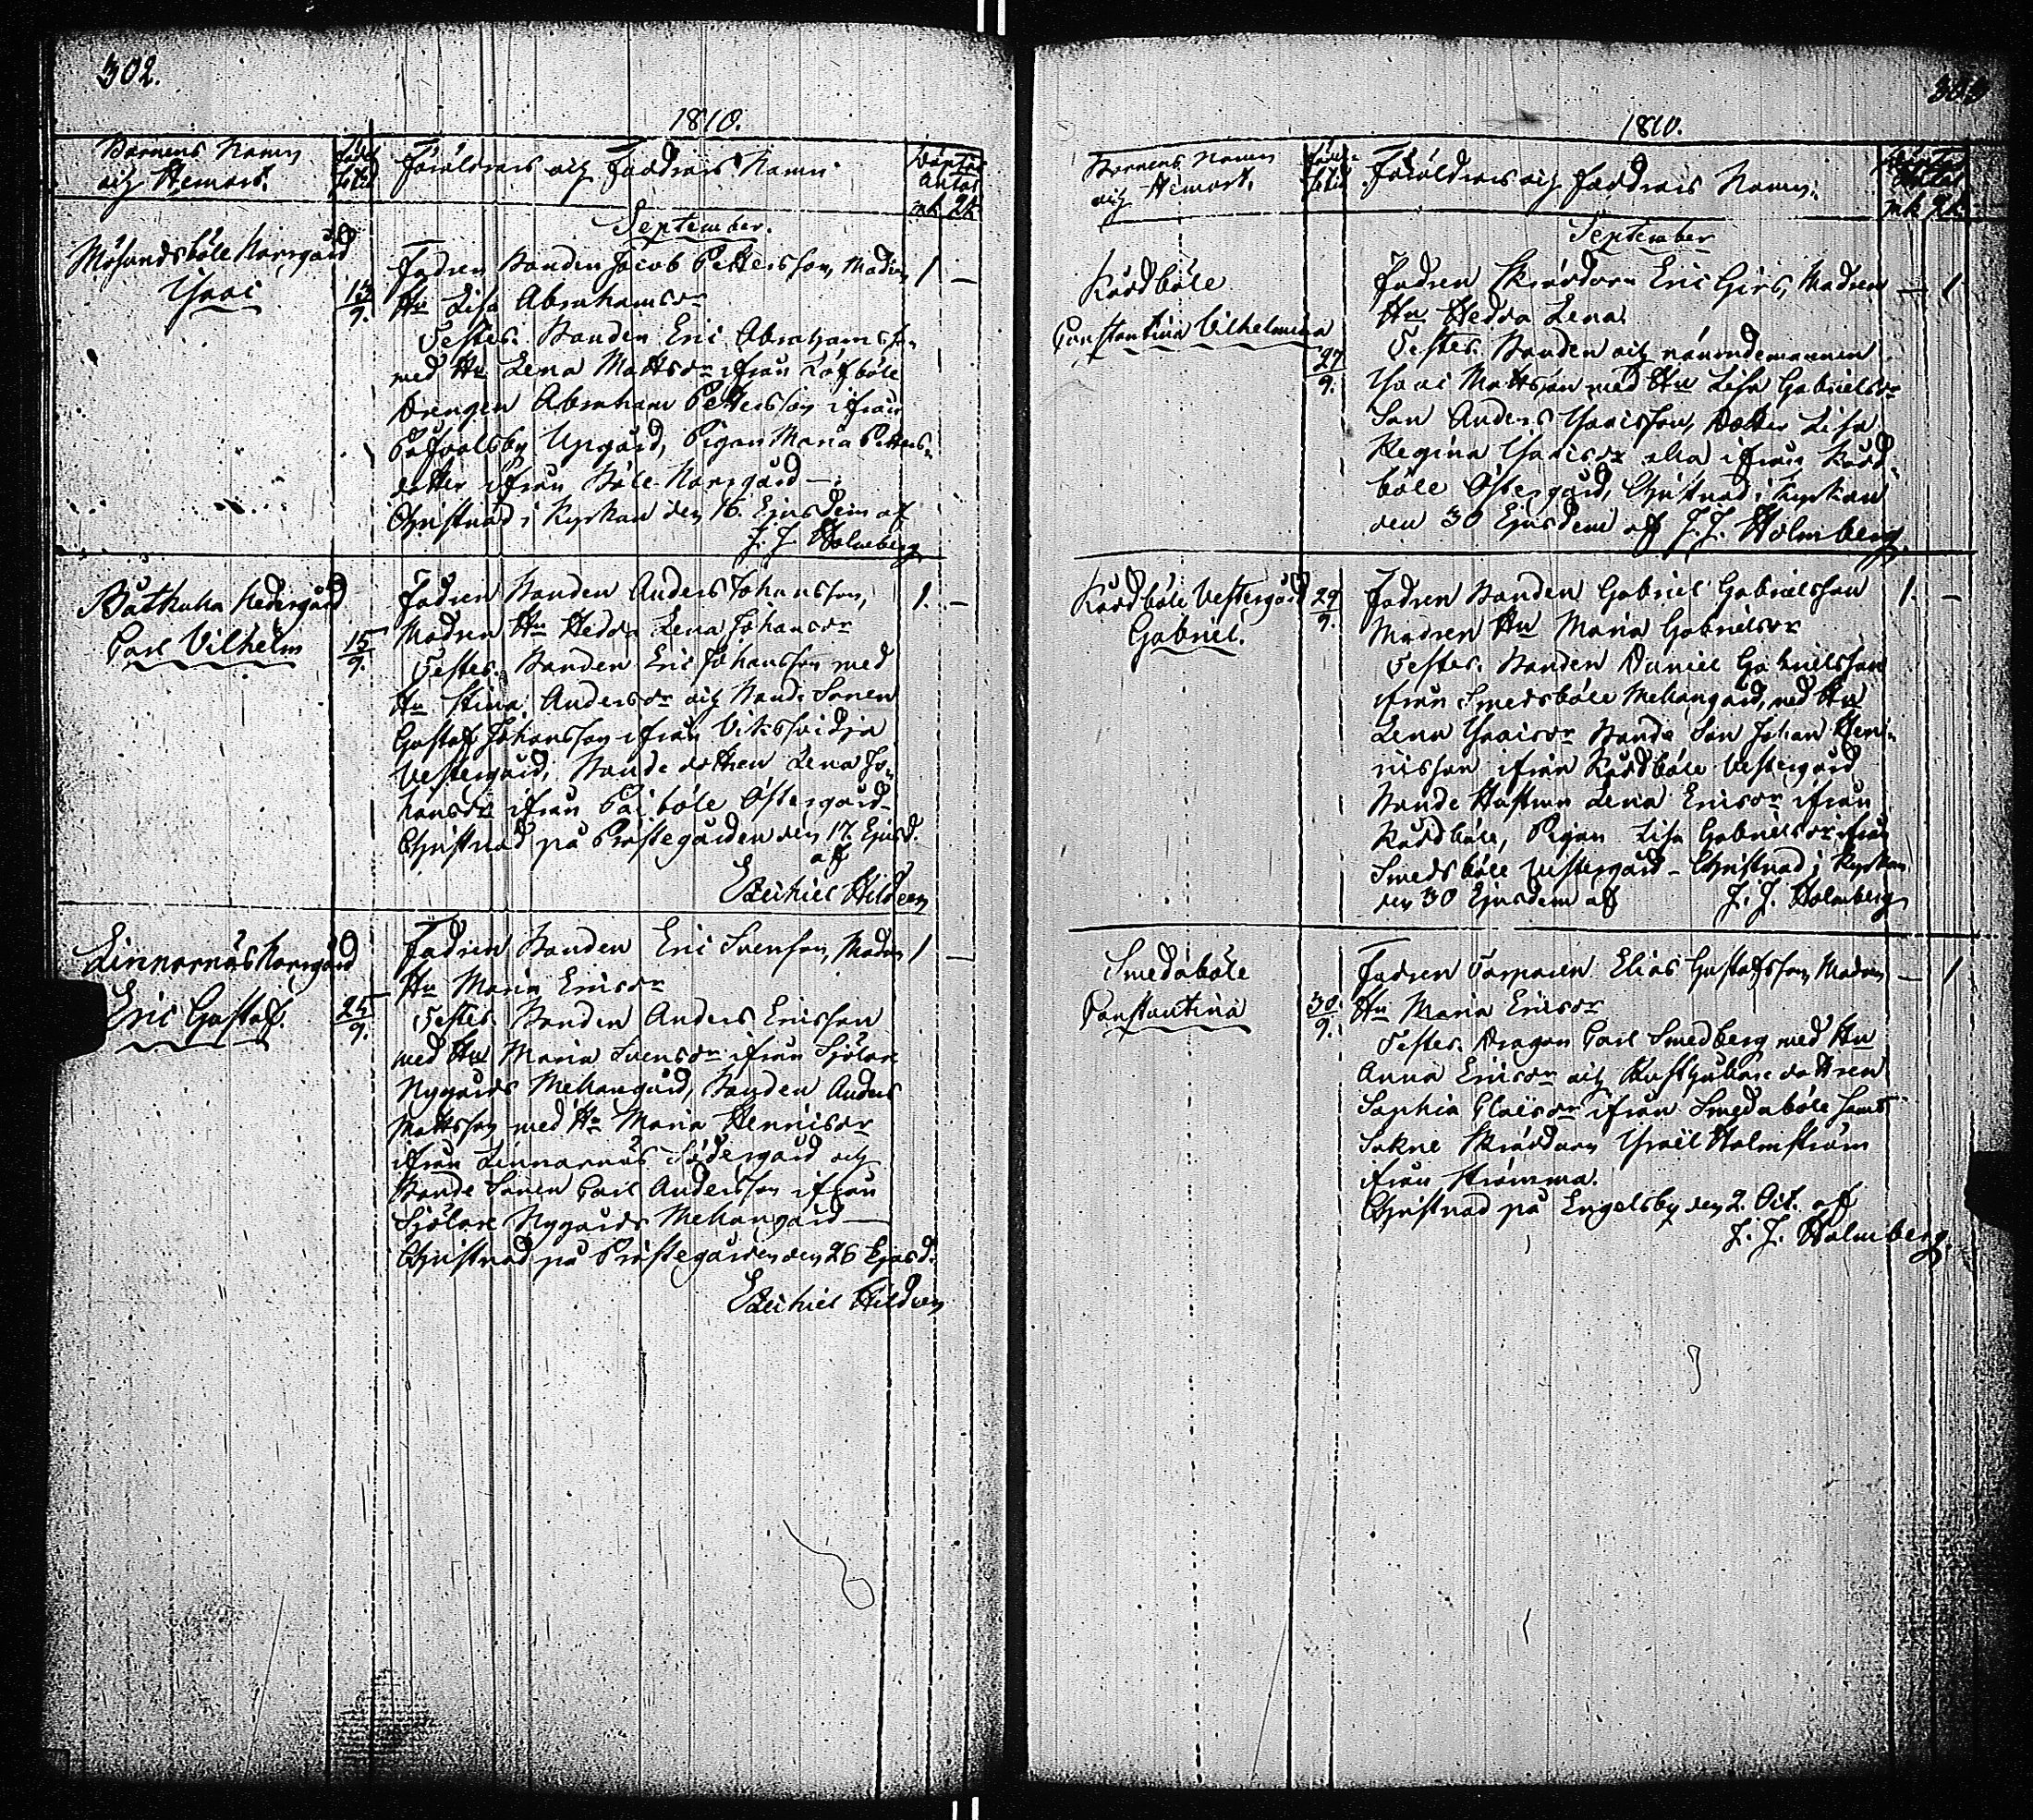 302.
1810.
Barnens Namn
och Hemort.
Föräldrars och Faddrars Namn
Antal
mk qk
September.
Norrgård
Isaac
13
9.
Fadren Bonden Jacob Pettersson, Modren
1 —
Hu Lisa Abrahamsdr
Testes. Bonden Eric Abrahamsson
med Hu Lena Mattsdr ifrån Löfböle
Drengen Abraham Pettersson ifrån
Uppgård, Pigan Maria Petters-
dotter ifrån Böle Norrgård —
Christnad i Kyrkan den 16. Ejusdem af
J. J. Holmberg
Båtkulla Nedergård
Carl Vilhelm
15
9.
Fadren Bonden Anders Johansson,
1. —
Modren Hu Hedda Lena Johansdr
Testes. Bonden Eric Johansson med
Hu Stina Andersdr och Bonde Sonen
Gustaf Johansson ifrån Viksvidja
Vestergård, Bonde dottren Lena Jo-
hansdr ifrån Paiböle Östergård
Christnad på Prästegården den 17. Ejusd.
af
Ezechiel Hildeen
Linnarnäs Norrgård
Eric Gustaf.
25
9.
Fadren Bonden Eric Svensson, Modren
1 —
Hu Maria Ericsdr
Testes. Bonden Anders Ericsson
med Hu Maria Svensdr ifrån Sjölax
Nygårds Mellangård, Bonden Anders
Mattsson med Hu Maria Hennicsdr
ifrån Linnarnäs Södergård och
Bonde Sonen Carl Andersson ifrån
Sjölax Nygårds Mellangård —
Christnad på Prästegården den 26 Ejusd.
Ezechiel Hildeen
303
1810.
Barnens Namn
och Hemort.
Föräldrars och Faddrars Namn.
mk qk
September
Kårdböle
Constantina Vilhelmina
27
9.
Fadren Skräddarn Eric Girs, Modren
— 1
Hu Hedda Lena
Testes. Bonden och nämndemannen
Isaac Mattsson med Hu Lisa Gabrielsdr
Son Anders Isacsson, Dotter Lisa
Regina Isacsdr alla ifrån Kård-
böle Östergård, Christnad i Kyrkan
den 30 Ejusdem af J. J. Holmberg
Kårdböle Vestergård
Gabriel.
29
9.
Fadren Bonden Gabriel Gabrielsson
1. —
Modren Hu Maria Gabrielsdr
Testes. Bonden Daniel Gabrielsson
ifrån Smedsböle Mellangård, med Hu
Lena Isacsdr Bonde Son Johan Hen-
ricsson ifrån Kårdböle Vestergård
Bonde Hustrun Lena Ericsdr ifrån
Kårdböle, Pigan Lisa Gabrielsdr ifrån
Smedsböle Vestergård – Christnad i Kyrkan
den 30 Ejusdem af J. J. Holmberg
Smedsböle
Constantina
30.
9.
Fadren Torparen Elias Gustafsson, Modren
— 1
Hu Maria Ericsdr
Testes. Dragon Carl Smedberg med Hu
Anna Ericsdr och Rusthållare dottren
Sophia Claesdr ifrån Smedsböle samt
Sokne Skräddarn Israël Holmström
ifrån Strömma.
Christnad på Engelsby den 2. Oct. af
J. J. Holmberg.